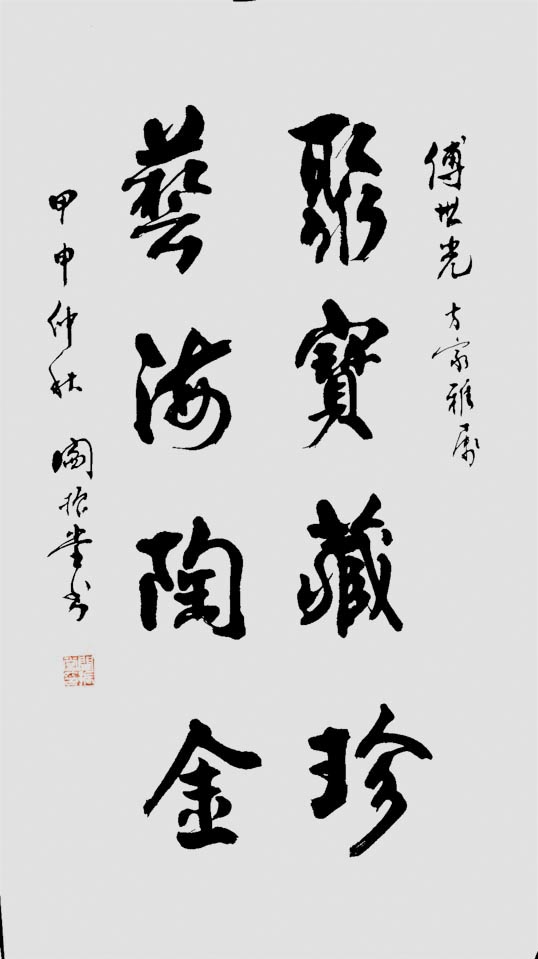 傅世光方家雅属
聚寶藏珍
藝海陶金
甲申仲秋 閻振堂书